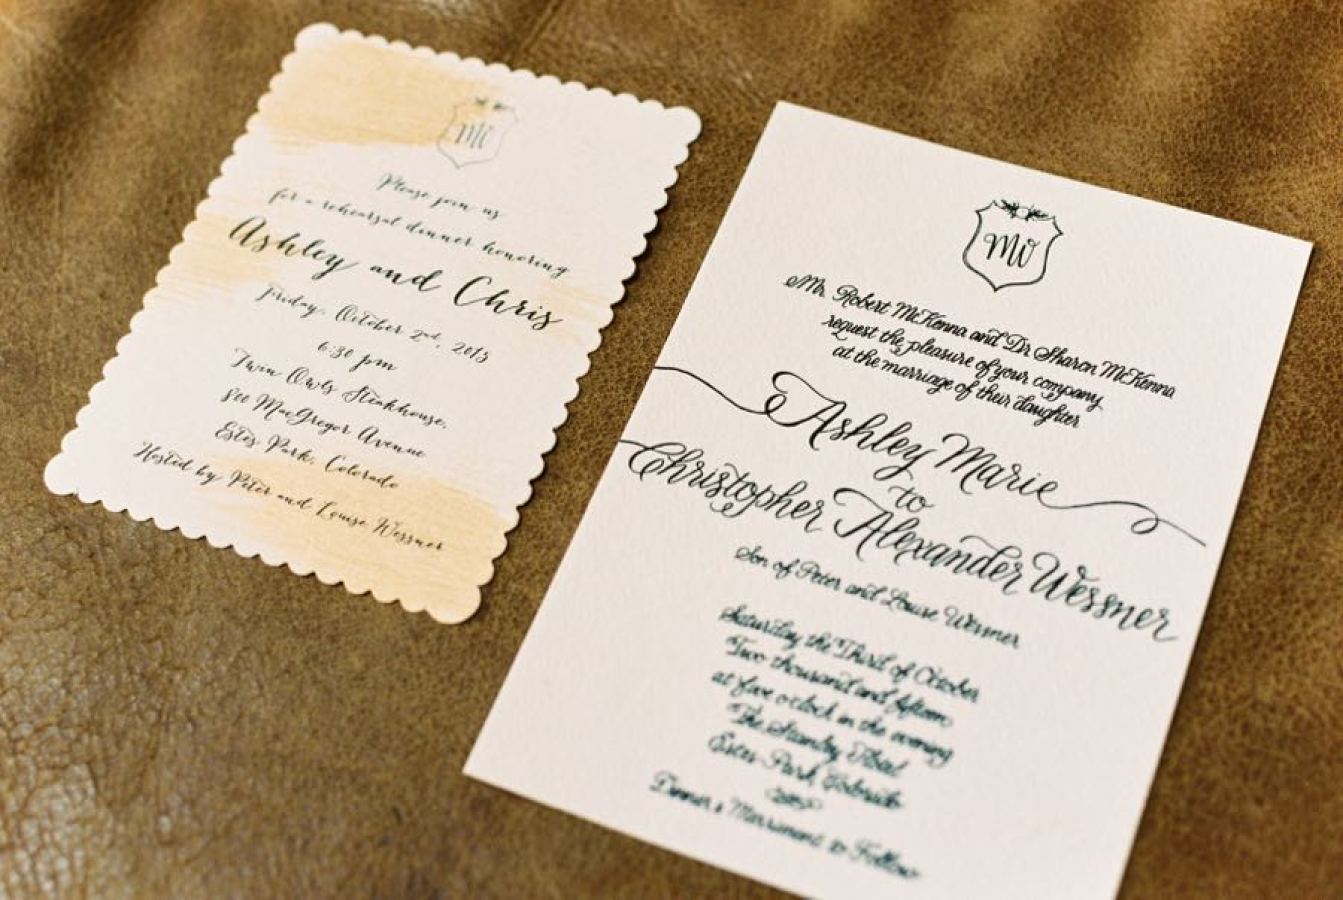 MO
Please join us
for a rehearsal dinner honoring
Ashley and Chris
Friday, October 2nd, 2015
6:30 pm
Twin Owls Steakhouse,
800 MacGregor Avenue
Estes Park, Colorado
Hosted by Peter and Louise Wessner
MO
Mr. Robert McKenna and Dr Sharon McKenna
request the pleasure of your company
at the marriage of their daughter
Ashley Marie
to
Christopher Alexander Wessner
Son of Peter and Louise Wessner
Saturday the Third of October
Two thousand and fifteen
at five o'clock in the evening
The Stanley Hotel
Estes Park, Colorado
Dinner & Merriment to Follow